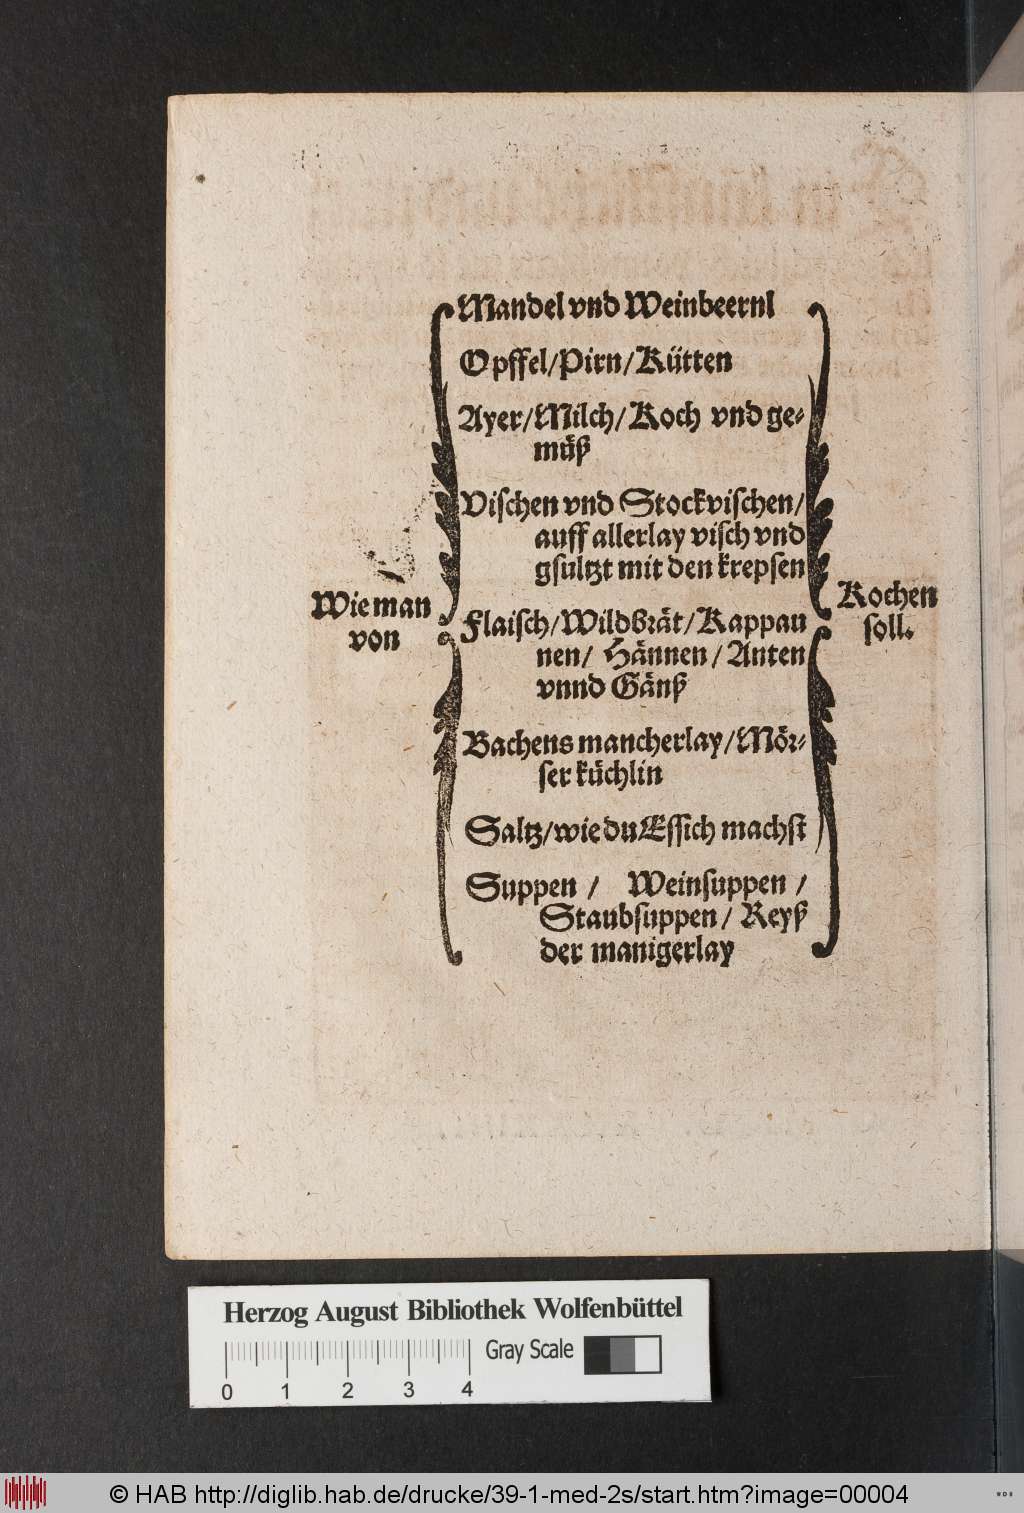 Mandel vnd Weinbeernl
Opffel/Pirn/Kütten
Ayer/Milch/Koch vnd ge-
müß
Vischen vnd Stockvischen/
auff allerlay visch vnd
gsultzt mit den krepsen
Wie man
von
Flaisch/Wildbrät/Kappau
nen/ Hännen/Anten
vnnd Gänß
Kochen
soll.
Bachens mancherlay/Mör-
ser küchlin
Saltz/wie du Essich machst
Suppen / Weinsuppen /
Staubsuppen/ Reyß
der manigerlay
Herzog August Bibliothek Wolfenbüttel
Gray Scale
0 1 2 3 4
© HAB http://diglib.hab.de/drucke/39-1-med-2s/start.htm?image=00004